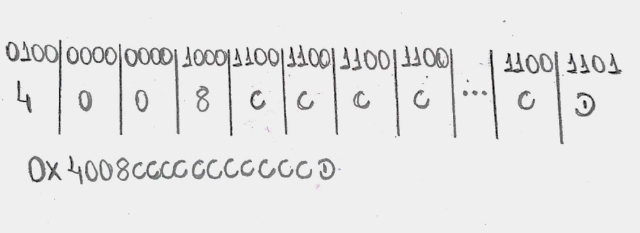 0100|0000|0000|1000|1100|1100|1100|1100|...|1100|1101
4|0|0|8|C|C|C|C|...|C|D
0x4008CCCCCCCCCCCD